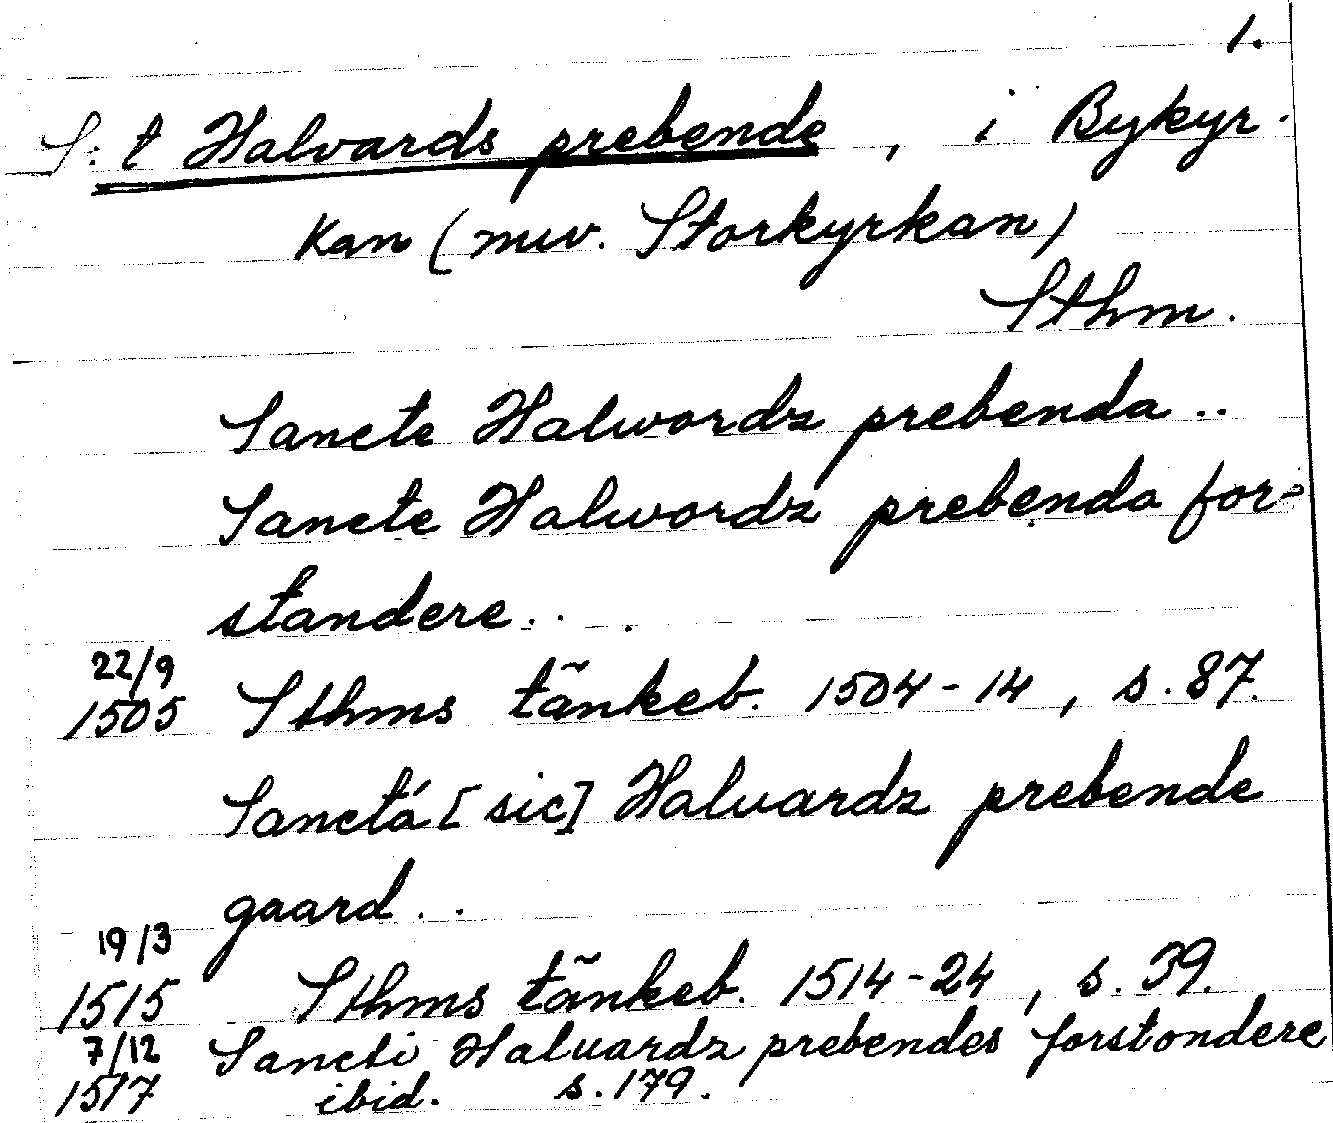 1.
S:t Halvards prebende, i Bykyr-
kan (nuv. Storkyrkan)
Sthm.
Sancte Halwordz prebenda..
Sancte Halwordz prebenda for-
standere..
22/9
1505 Sthms tänkeb. 1504-14, s. 87.
Sanctá [sic] Haluardz prebende
gaard..
19/3
1515 Sthms tänkeb. 1514-24, s. 39.
7/12 Sancti Haluardz prebendes forstondere
1517 ibid. s. 179.